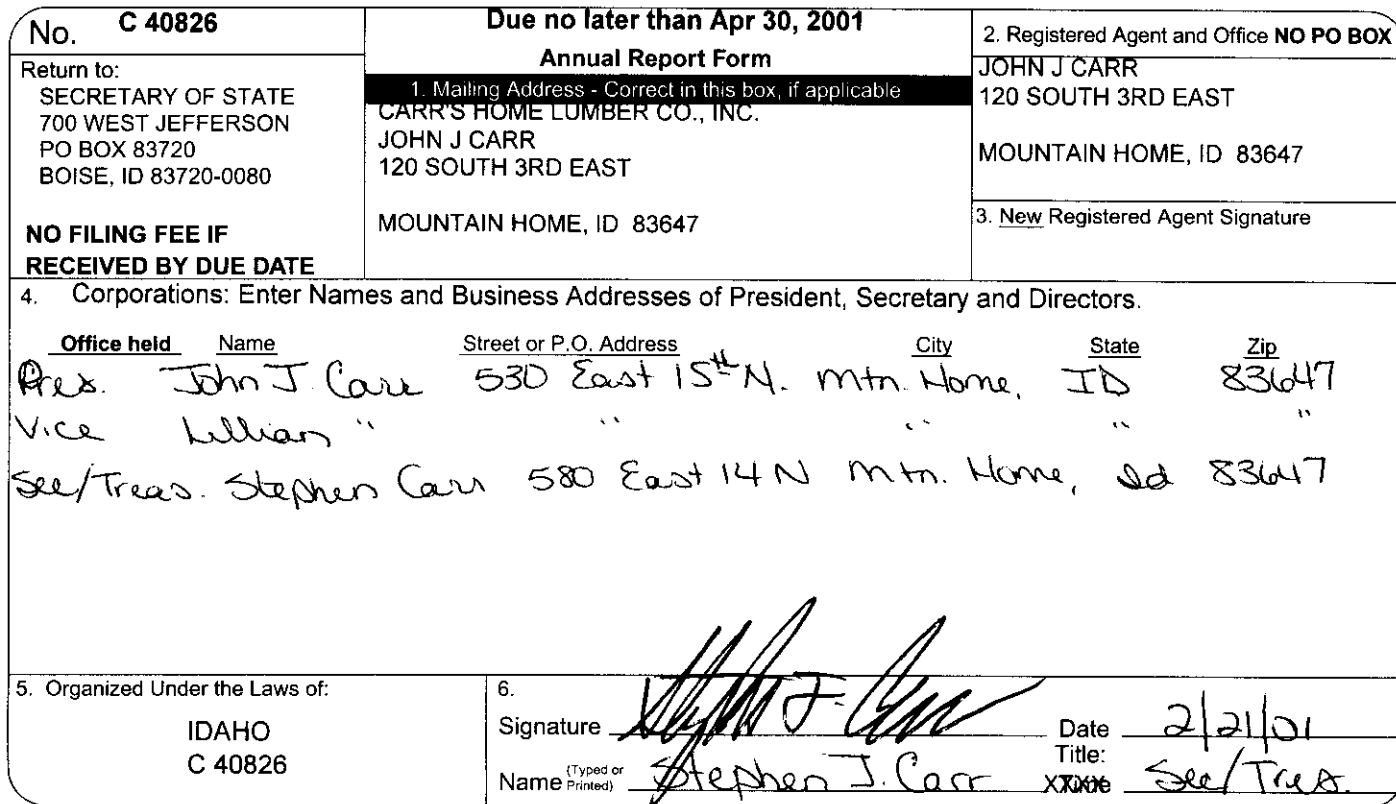 No. C 40826
Return to:
SECRETARY OF STATE
700 WEST JEFFERSON
PO BOX 83720
BOISE, ID 83720-0080
NO FILING FEE IF
RECEIVED BY DUE DATE
Due no later than Apr 30, 2001
Annual Report Form
1. Mailing Address - Correct in this box, if applicable
CARR'S HOME LUMBER CO., INC.
JOHN J CARR
120 SOUTH 3RD EAST
MOUNTAIN HOME, ID 83647
2. Registered Agent and Office NO PO BOX
JOHN J CARR
120 SOUTH 3RD EAST
MOUNTAIN HOME, ID 83647
3. New Registered Agent Signature
4. Corporations: Enter Names and Business Addresses of President, Secretary and Directors.
Office held Name Street or P.O. Address City State Zip
Pres. John J. Carr 530 East 15th N. Mtn. Home, ID 83647
Vice Lillian " " " " "
Sec/Treas. Stephen Carr 580 East 14 N Mtn. Home, Id 83647
5. Organized Under the Laws of:
IDAHO
C 40826
6.
Signature Stephen J. Carr Date 2/21/01
Title:
Name (Typed or Printed) Stephen J. Carr Sec/Tres.